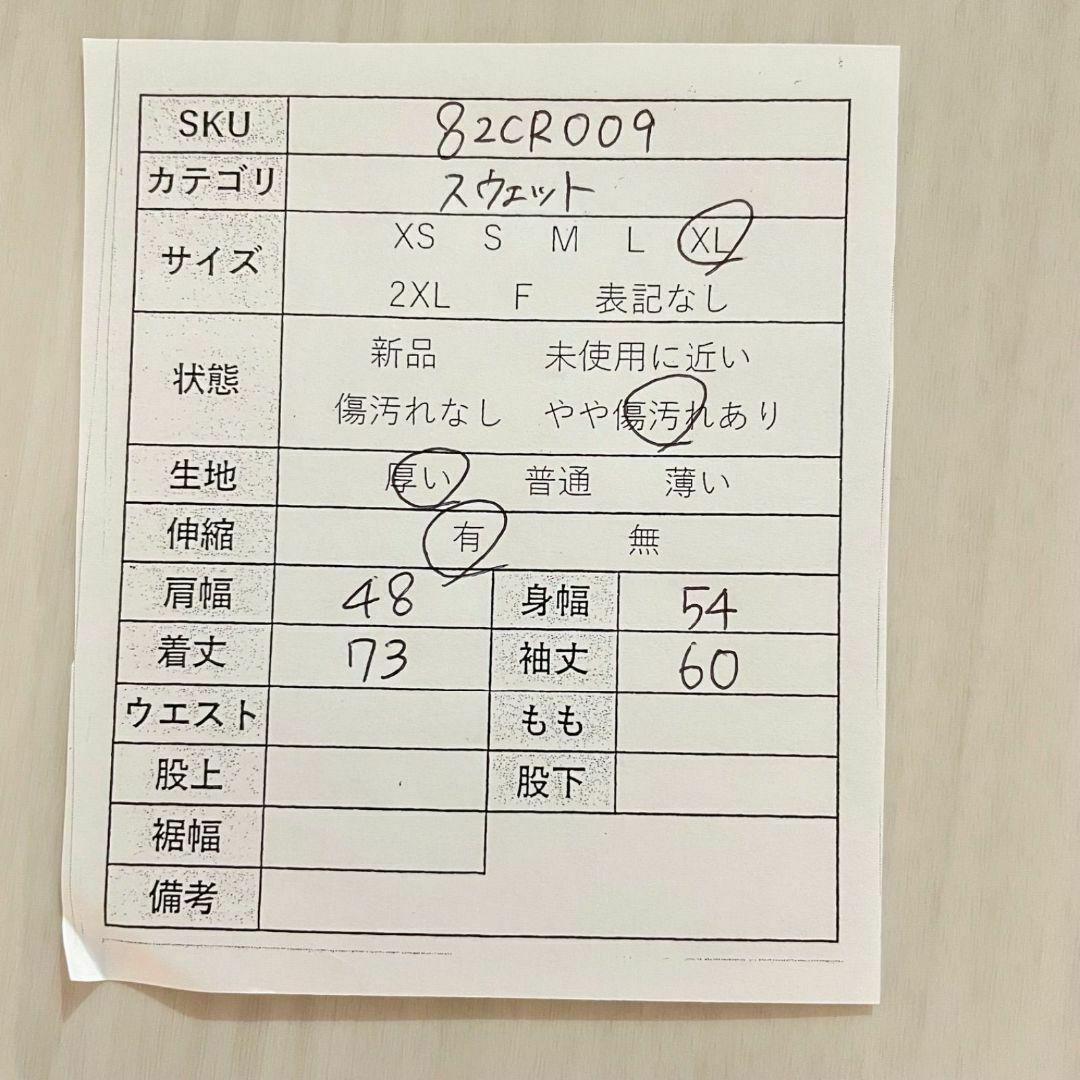 SKU 82CR009
カテゴリ スウェット
サイズ XS S M L XL
2XL F 表記なし
状態 新品 未使用に近い
傷汚れなし やや傷汚れあり
生地 厚い 普通 薄い
伸縮 有 無
肩幅 48 身幅 54
着丈 73 袖丈 60
ウエスト もも
股上 股下
裾幅
備考